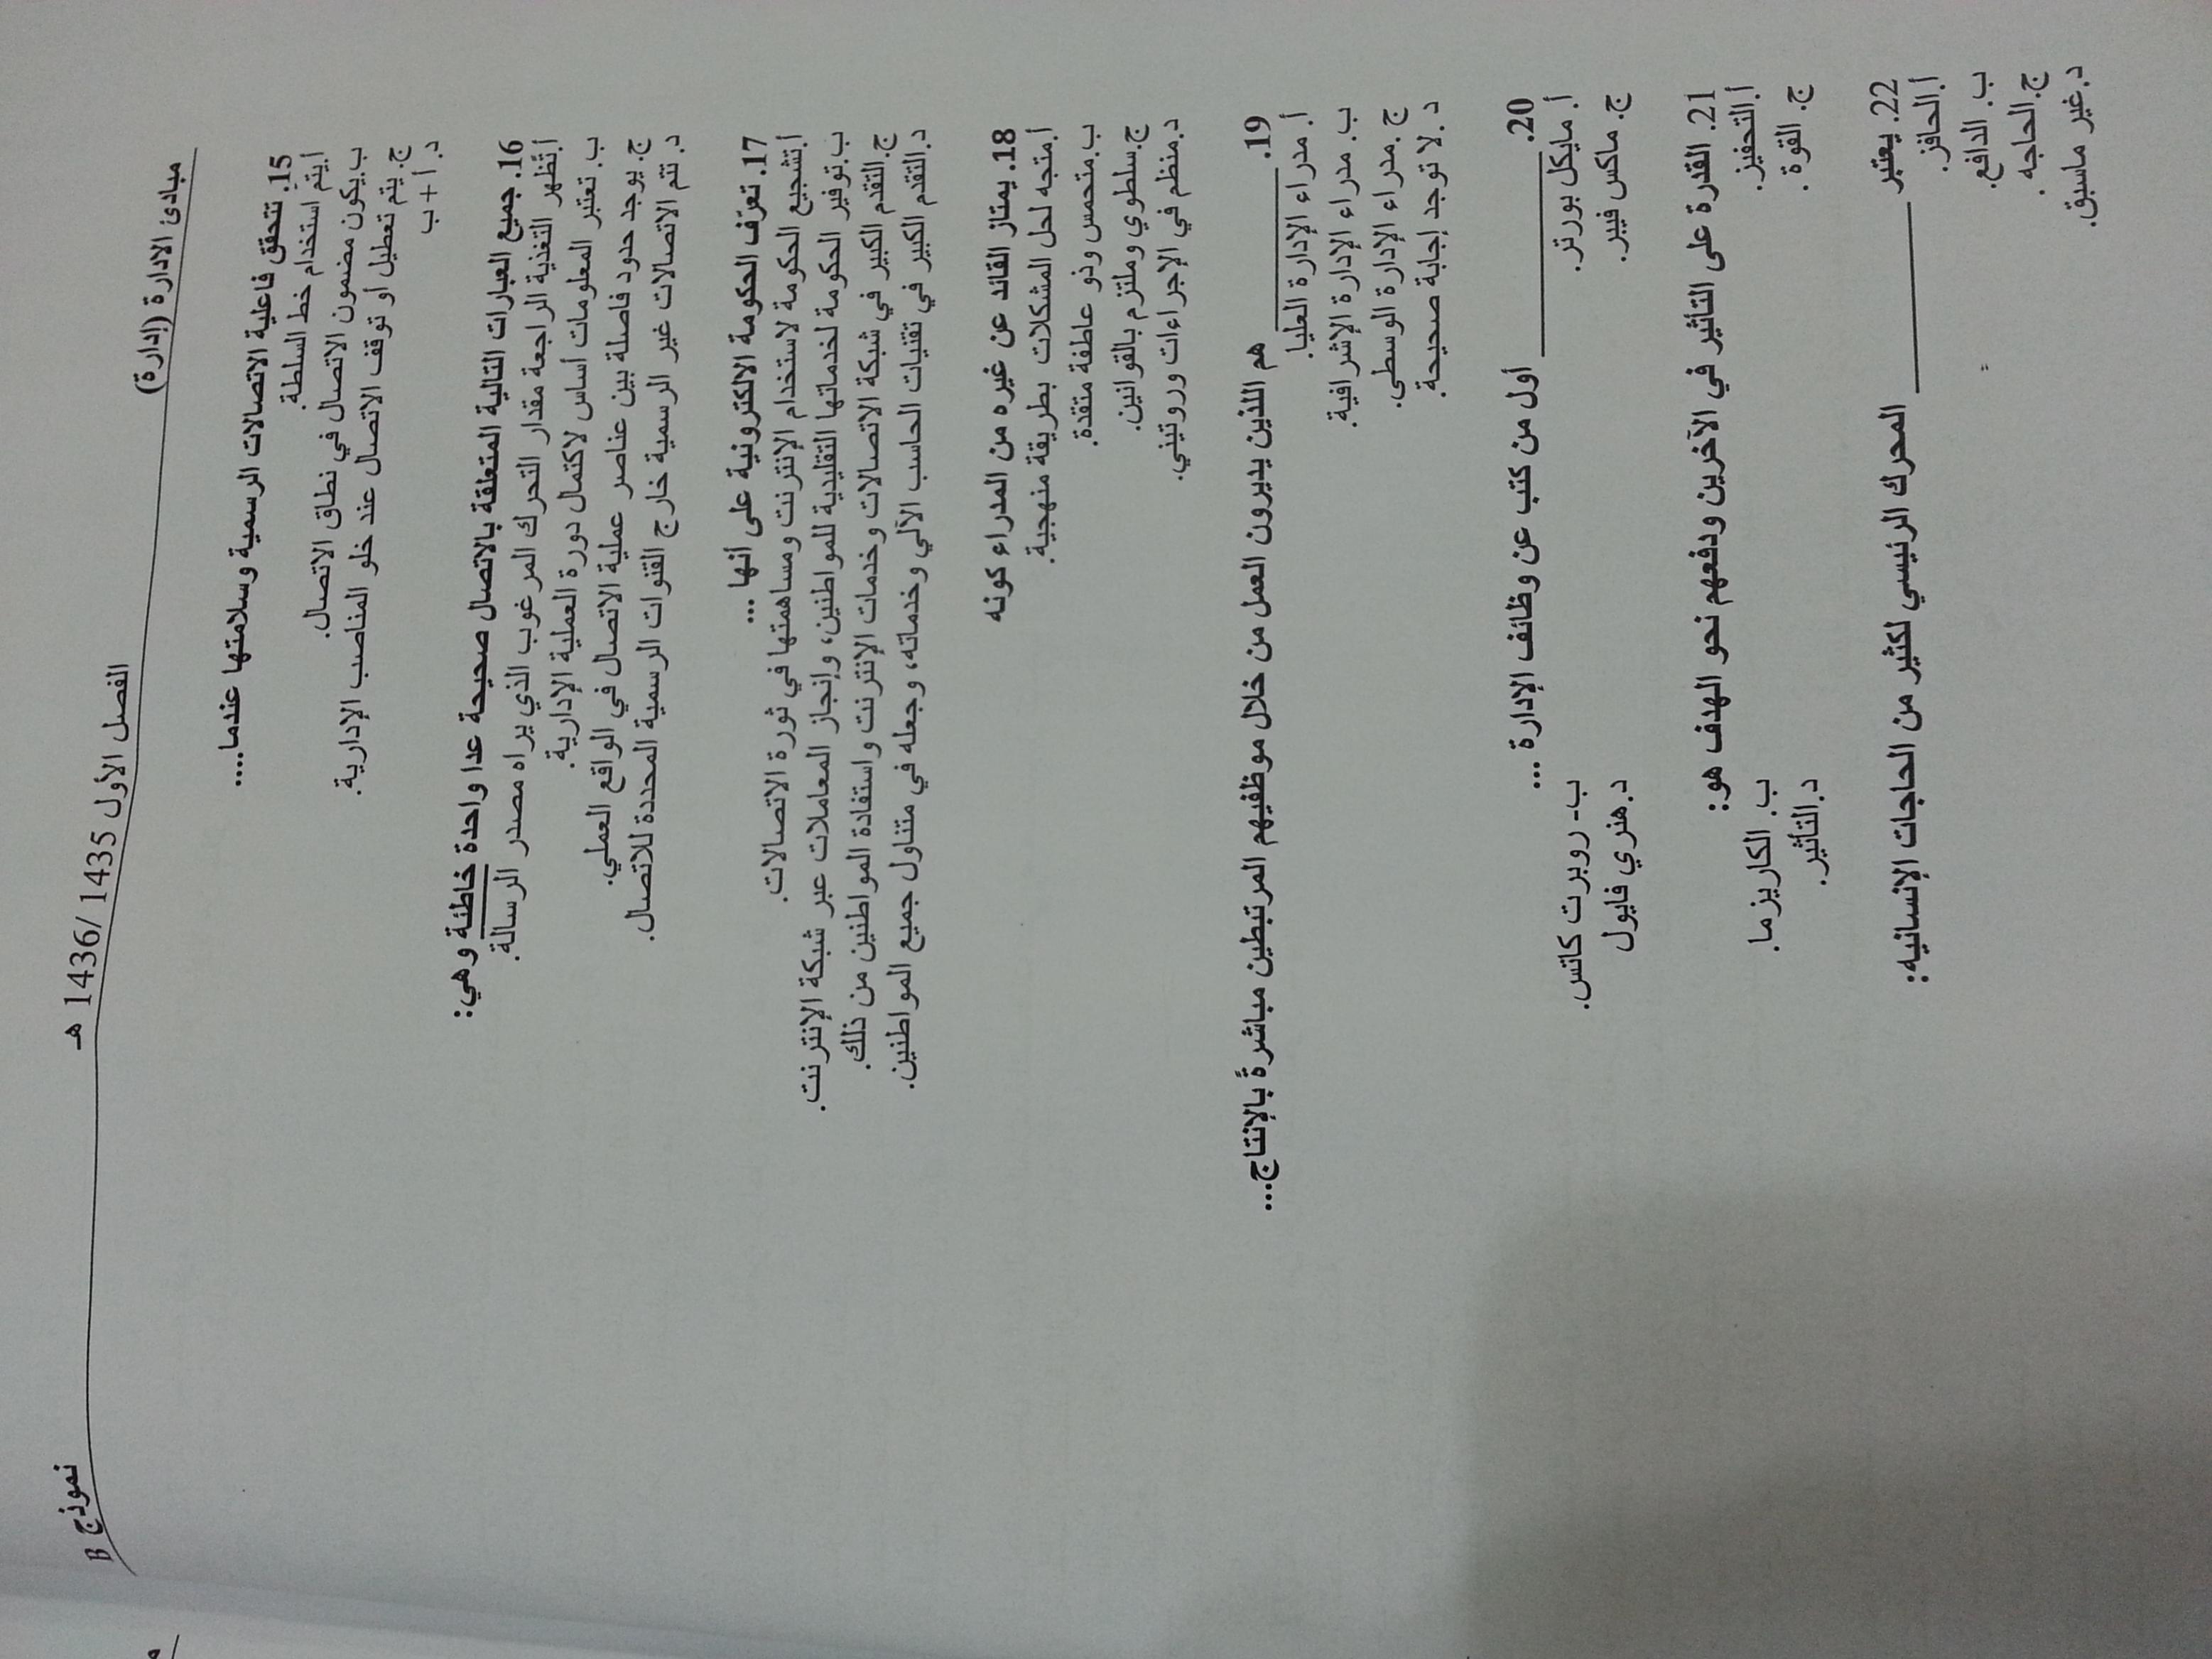 مبادئ الادارة (إدارة)
الفصل الأول 1435 /1436 هـ
نموذج B
15. تتحقق فاعلية الاتصالات الرسمية وسلامتها عندما....
أ.يتم استخدام خط السلطة.
ب.يكون مضمون الاتصال في نطاق الاتصال.
ج.يتم تعطيل أو توقف الاتصال عند خلو المناصب الإدارية.
د. أ + ب
16. جميع العبارات التالية المتعلقة بالاتصال صحيحة عدا واحدة خاطئة وهي:
أ.تُظهر التغذية الراجعة مقدار التحرك المرغوب الذي يراه مصدر الرسالة.
ب. تعتبر المعلومات أساس لاكتمال دورة العملية الإدارية.
ج. يوجد حدود فاصلة بين عناصر عملية الاتصال في الواقع العملي.
د. تتم الاتصالات غير الرسمية خارج القنوات الرسمية المحددة للاتصال.
17. تعرّف الحكومة الالكترونية على أنها ...
أ.تشجيع الحكومة لاستخدام الإنترنت ومساهمتها في ثورة الاتصالات.
ب.توفير الحكومة لخدماتها التقليدية للمواطنين، وإنجاز المعاملات عبر شبكة الإنترنت.
ج.التقدم الكبير في شبكة الاتصالات وخدمات الإنترنت واستفادة المواطنين من ذلك.
د.التقدم الكبير في تقنيات الحاسب الآلي وخدماته، وجعله في متناول جميع المواطنين.
18. يمتاز القائد عن غيره من المدراء كونه
أ.متجه لحل المشكلات بطريقة منهجية.
ب.متحمس وذو عاطفة متقدة.
ج.سلطوي وملتزم بالقوانين.
د.منظم في الإجراءات وروتيني.
19. __________ هم اللذين يديرون العمل من خلال موظفيهم المرتبطين مباشرةً بالإنتاج...
أ. مدراء الإدارة العليا.
ب. مدراء الإدارة الإشرافية.
ج .مدراء الإدارة الوسطى.
د .لا توجد إجابة صحيحة.
20. __________ أول من كتب عن وظائف الإدارة ...
أ. مايكل بورتر. ب- روبرت كاتس.
ج. ماكس فيبر. د.هنري فايول
21. القدرة على التأثير في الآخرين ودفعهم نحو الهدف هو:
أ.التحفيز. ب. الكاريزما.
ج. القوة . د.التأثير.
22. يعتبر __________ المحرك الرئيسي لكثير من الحاجات الإنسانيه:
أ.الحافز.
ب. الدافع.
ج.الحاجه .
د.غير ماسبق.